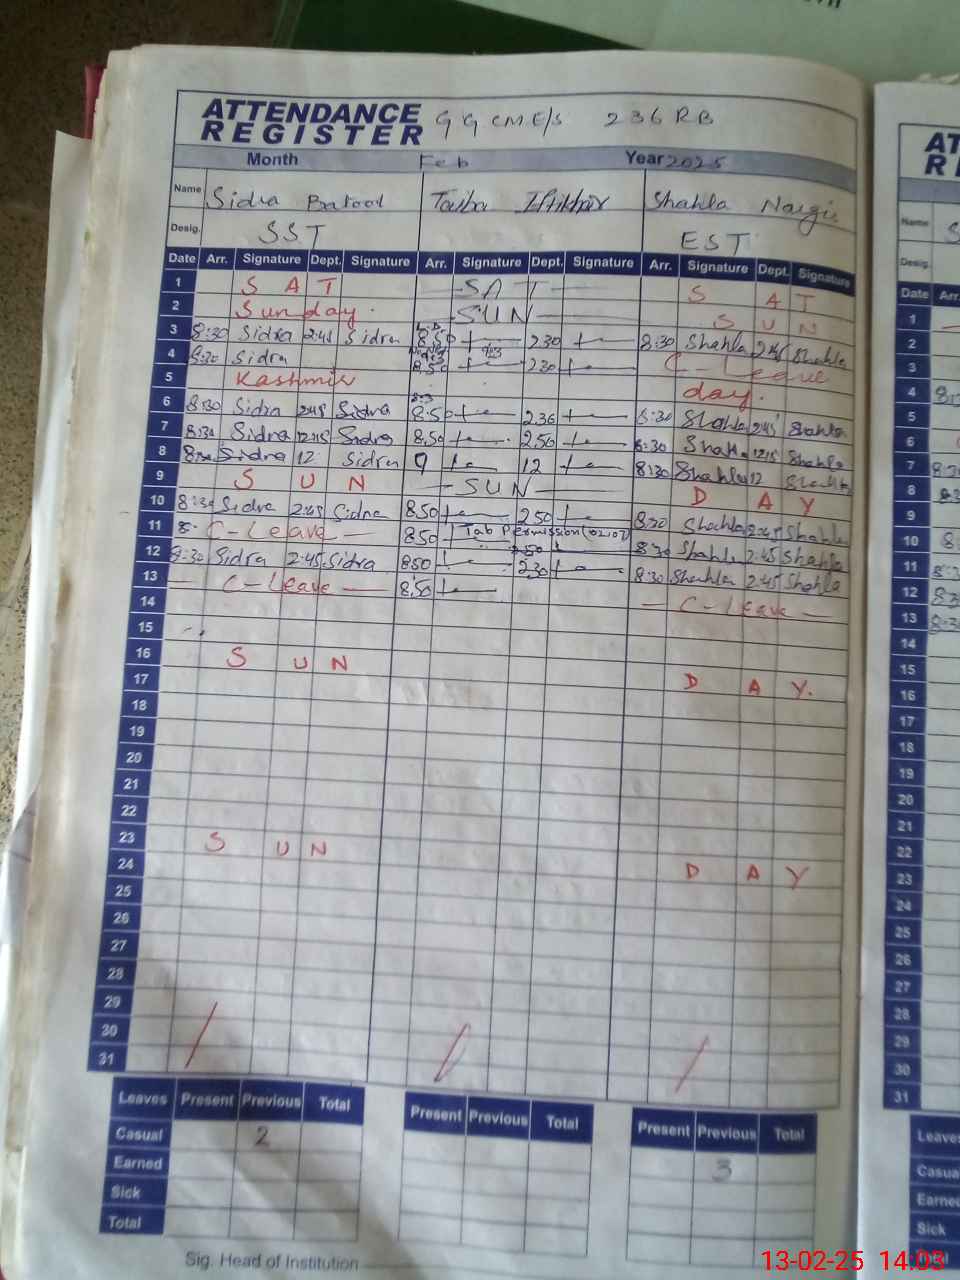 ATTENDANCE REGISTER GGCME/S 236 RB
Month Feb Year 2025
Name Sidra Batool Taiba Iftikhar Shahla Nargis
Desig. SST EST
Date Arr. Signature Dept. Signature Arr. Signature Dept. Signature Arr. Signature Dept. Signature
1 SAT SAT SAT
2 Sunday. SUN SUN
3 8:30 Sidra 2:45 Sidra 8.50 2.30 8:30 Shahla 2:45 Shahla
4 8:30 Sidra 8.50 2.30 C-Leave
5 Kashmir day.
6 8:30 Sidra 2:45 Sidra 8.50 2.30 8:30 Shahla 2:45 Shahla
7 8:30 Sidra 12:15 Sidra 8.50 2.50 8:30 Shahla 12:15 Shahla
8 8:30 Sidra 12 Sidra 9 12 8:30 Shahla 12 Shahla
9 SUN SUN DAY
10 8:30 Sidra 2:45 Sidra 8.50 2.50 8:30 Shahla 2:45 Shahla
11 8: C-Leave 8.50 Tab Permission 2.50 8:30 Shahla 2:45 Shahla
12 8:30 Sidra 2:45 Sidra 8.50 2.30 8:30 Shahla 2:45 Shahla
13 C-Leave 8.50 C-Leave
14
15
16 SUN DAY.
17
18
19
20
21
22
23 SUN DAY
24
25
26
27
28
29
30
31
Leaves Present Previous Total Present Previous Total Present Previous Total
Casual 2 3
Earned
Sick
Total
Sig. Head of Institution
AT
RE
Name S
Desig.
Date Arr.
1
2
3
4
5
6
7 8:30
8
9
10
11 8:30
12 8:30
13 8:30
14
15
16
17
18
19
20
21
22
23
24
25
26
27
28
29
30
31
Leaves
Casual
Earned
Sick
Total
13-02-25 14:03